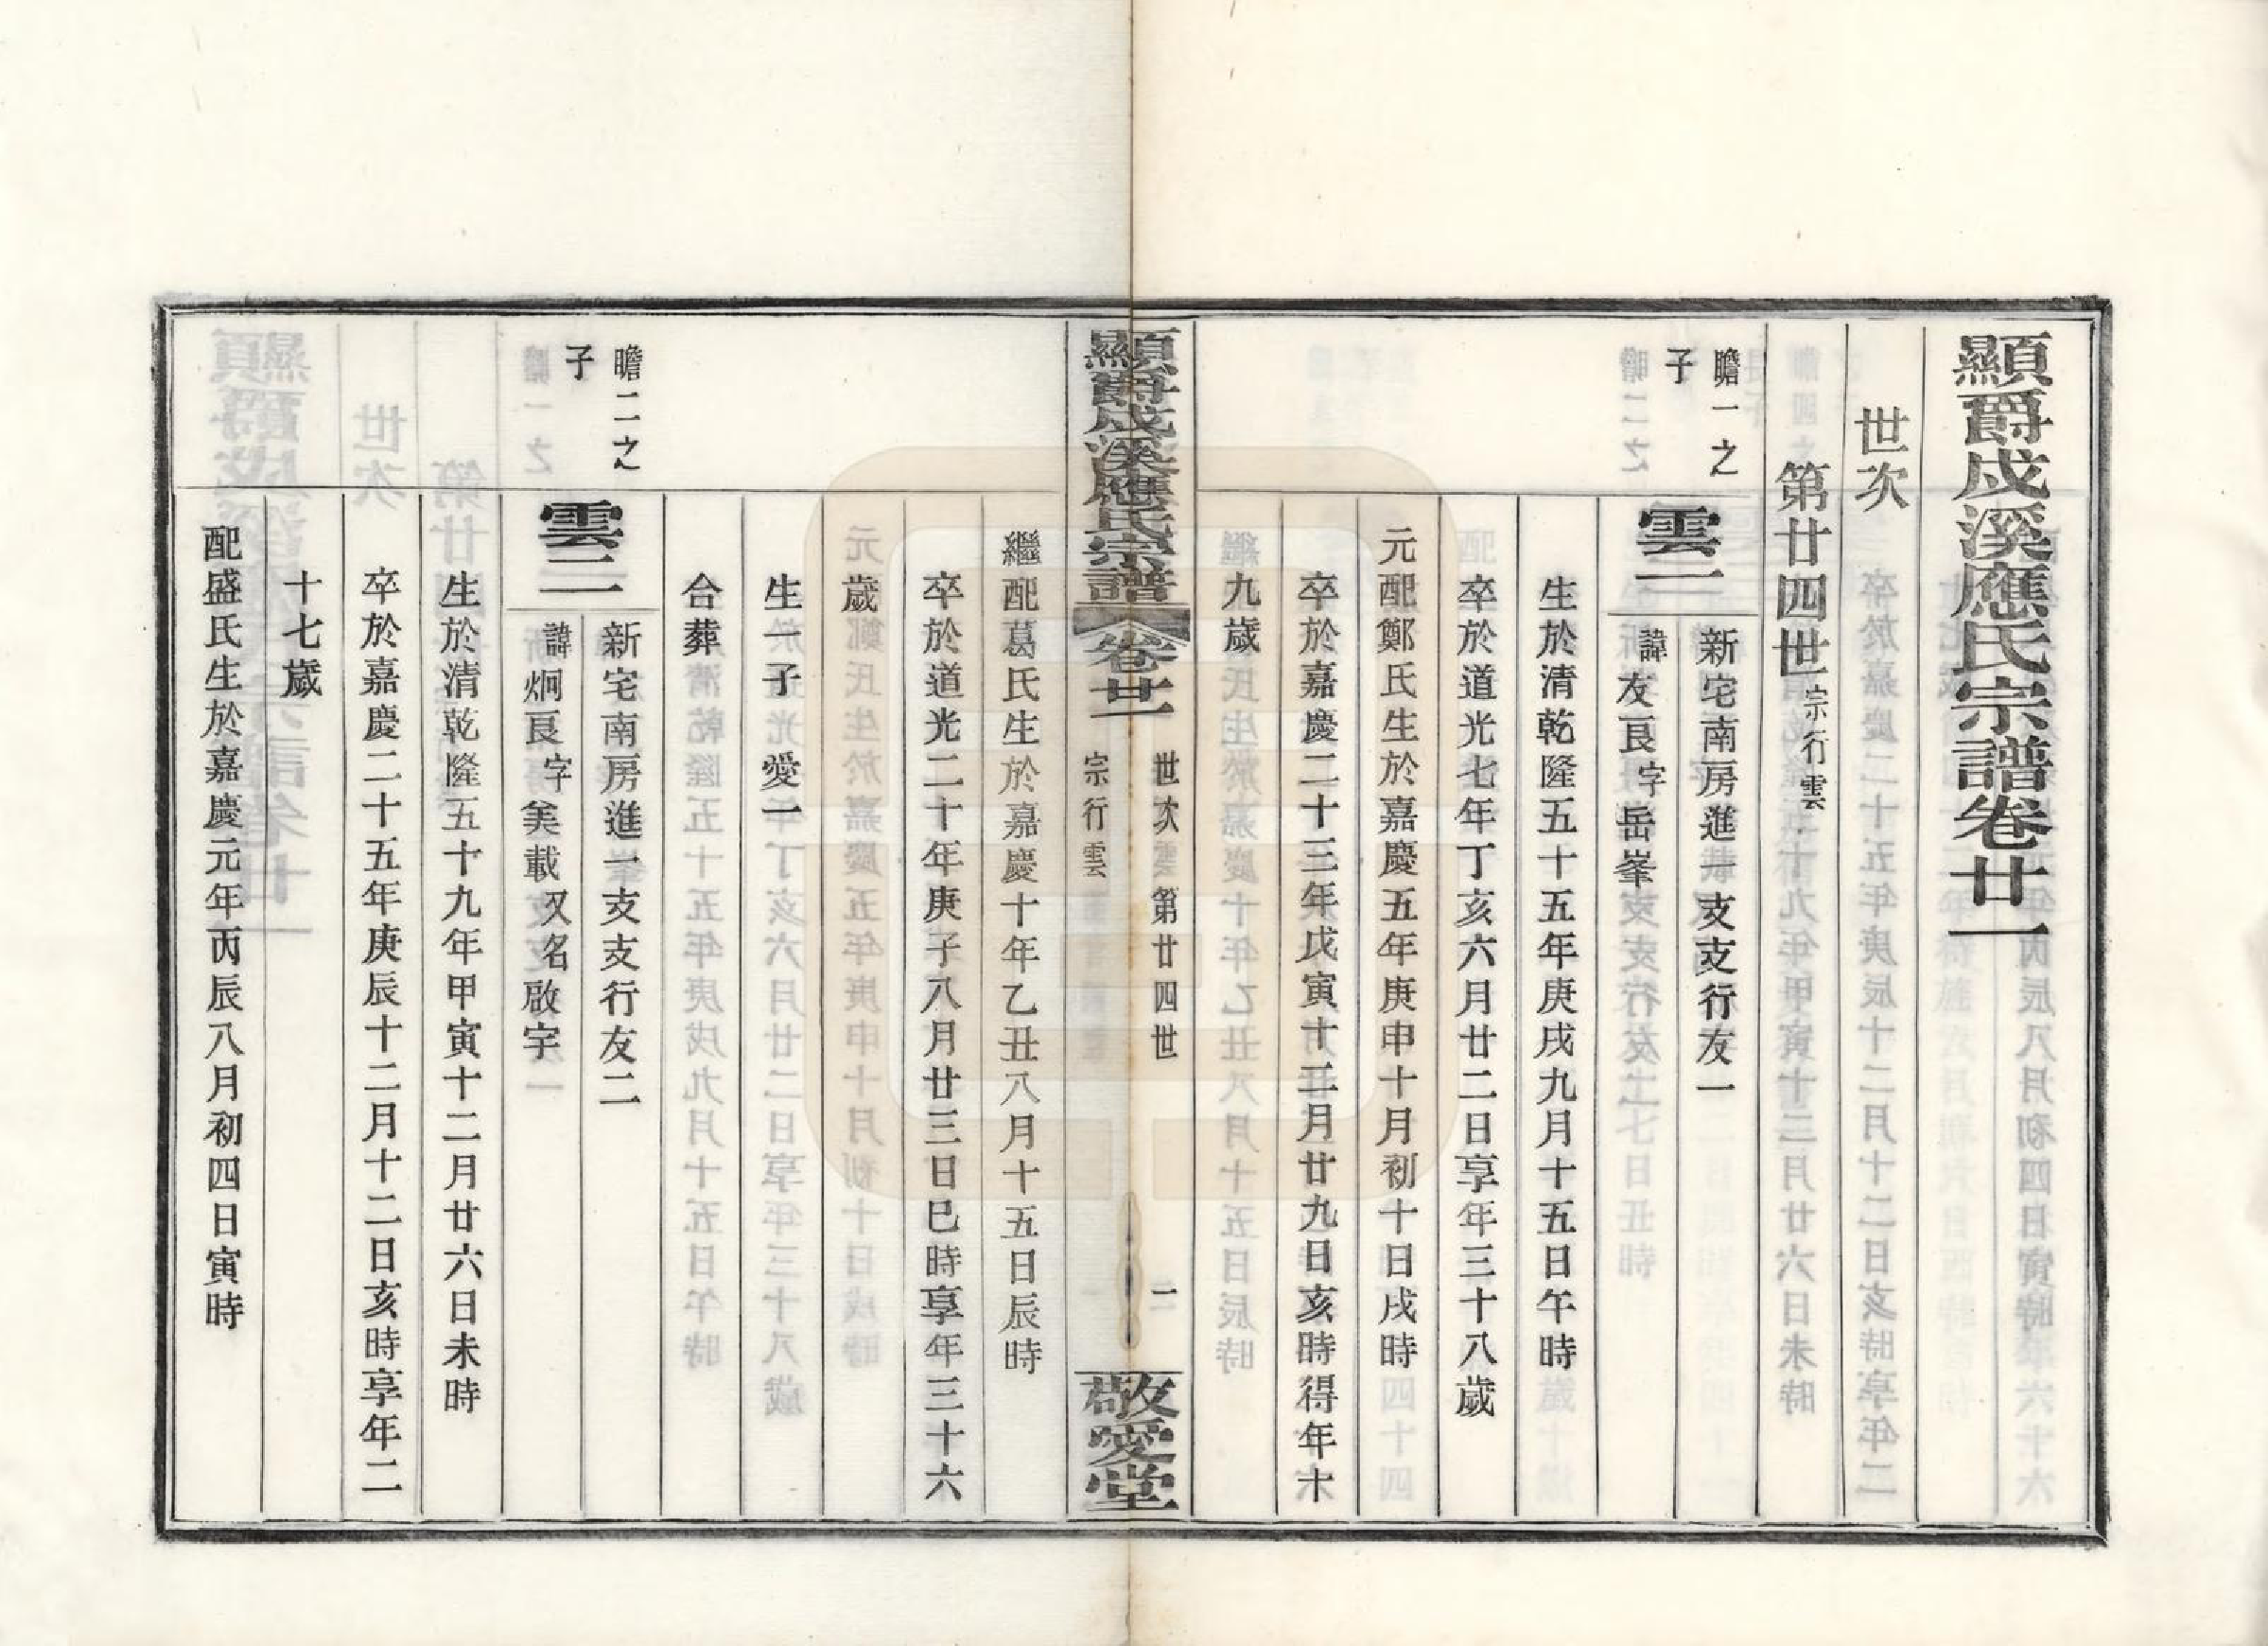 顯爵戍溪應氏宗譜卷廿一
世次
第廿四世宗行雲
瞻一之
子
雲一
新宅南房進一支支行友一
諱友良字岳峯
生於清乾隆五十五年庚戌九月十五日午時
卒於道光七年丁亥六月廿二日享年三十八歲
元配鄭氏生於嘉慶五年庚申十月初十日戌時
卒於嘉慶二十三年戊寅十二月廿九日亥時得年十
九歲
顯爵戍溪應氏宗譜 卷廿一
世次 第廿四世
宗行雲
二
敬愛堂
繼配葛氏生於嘉慶十年乙丑八月十五日辰時
卒於道光二十年庚子八月廿三日巳時享年三十六
歲
生一子 愛一
合葬
瞻二之
子
雲二
新宅南房進一支支行友二
諱炯良字美載又名啟宇
生於清乾隆五十九年甲寅十二月廿六日未時
卒於嘉慶二十五年庚辰十二月十二日亥時享年二
十七歲
配盛氏生於嘉慶元年丙辰八月初四日寅時